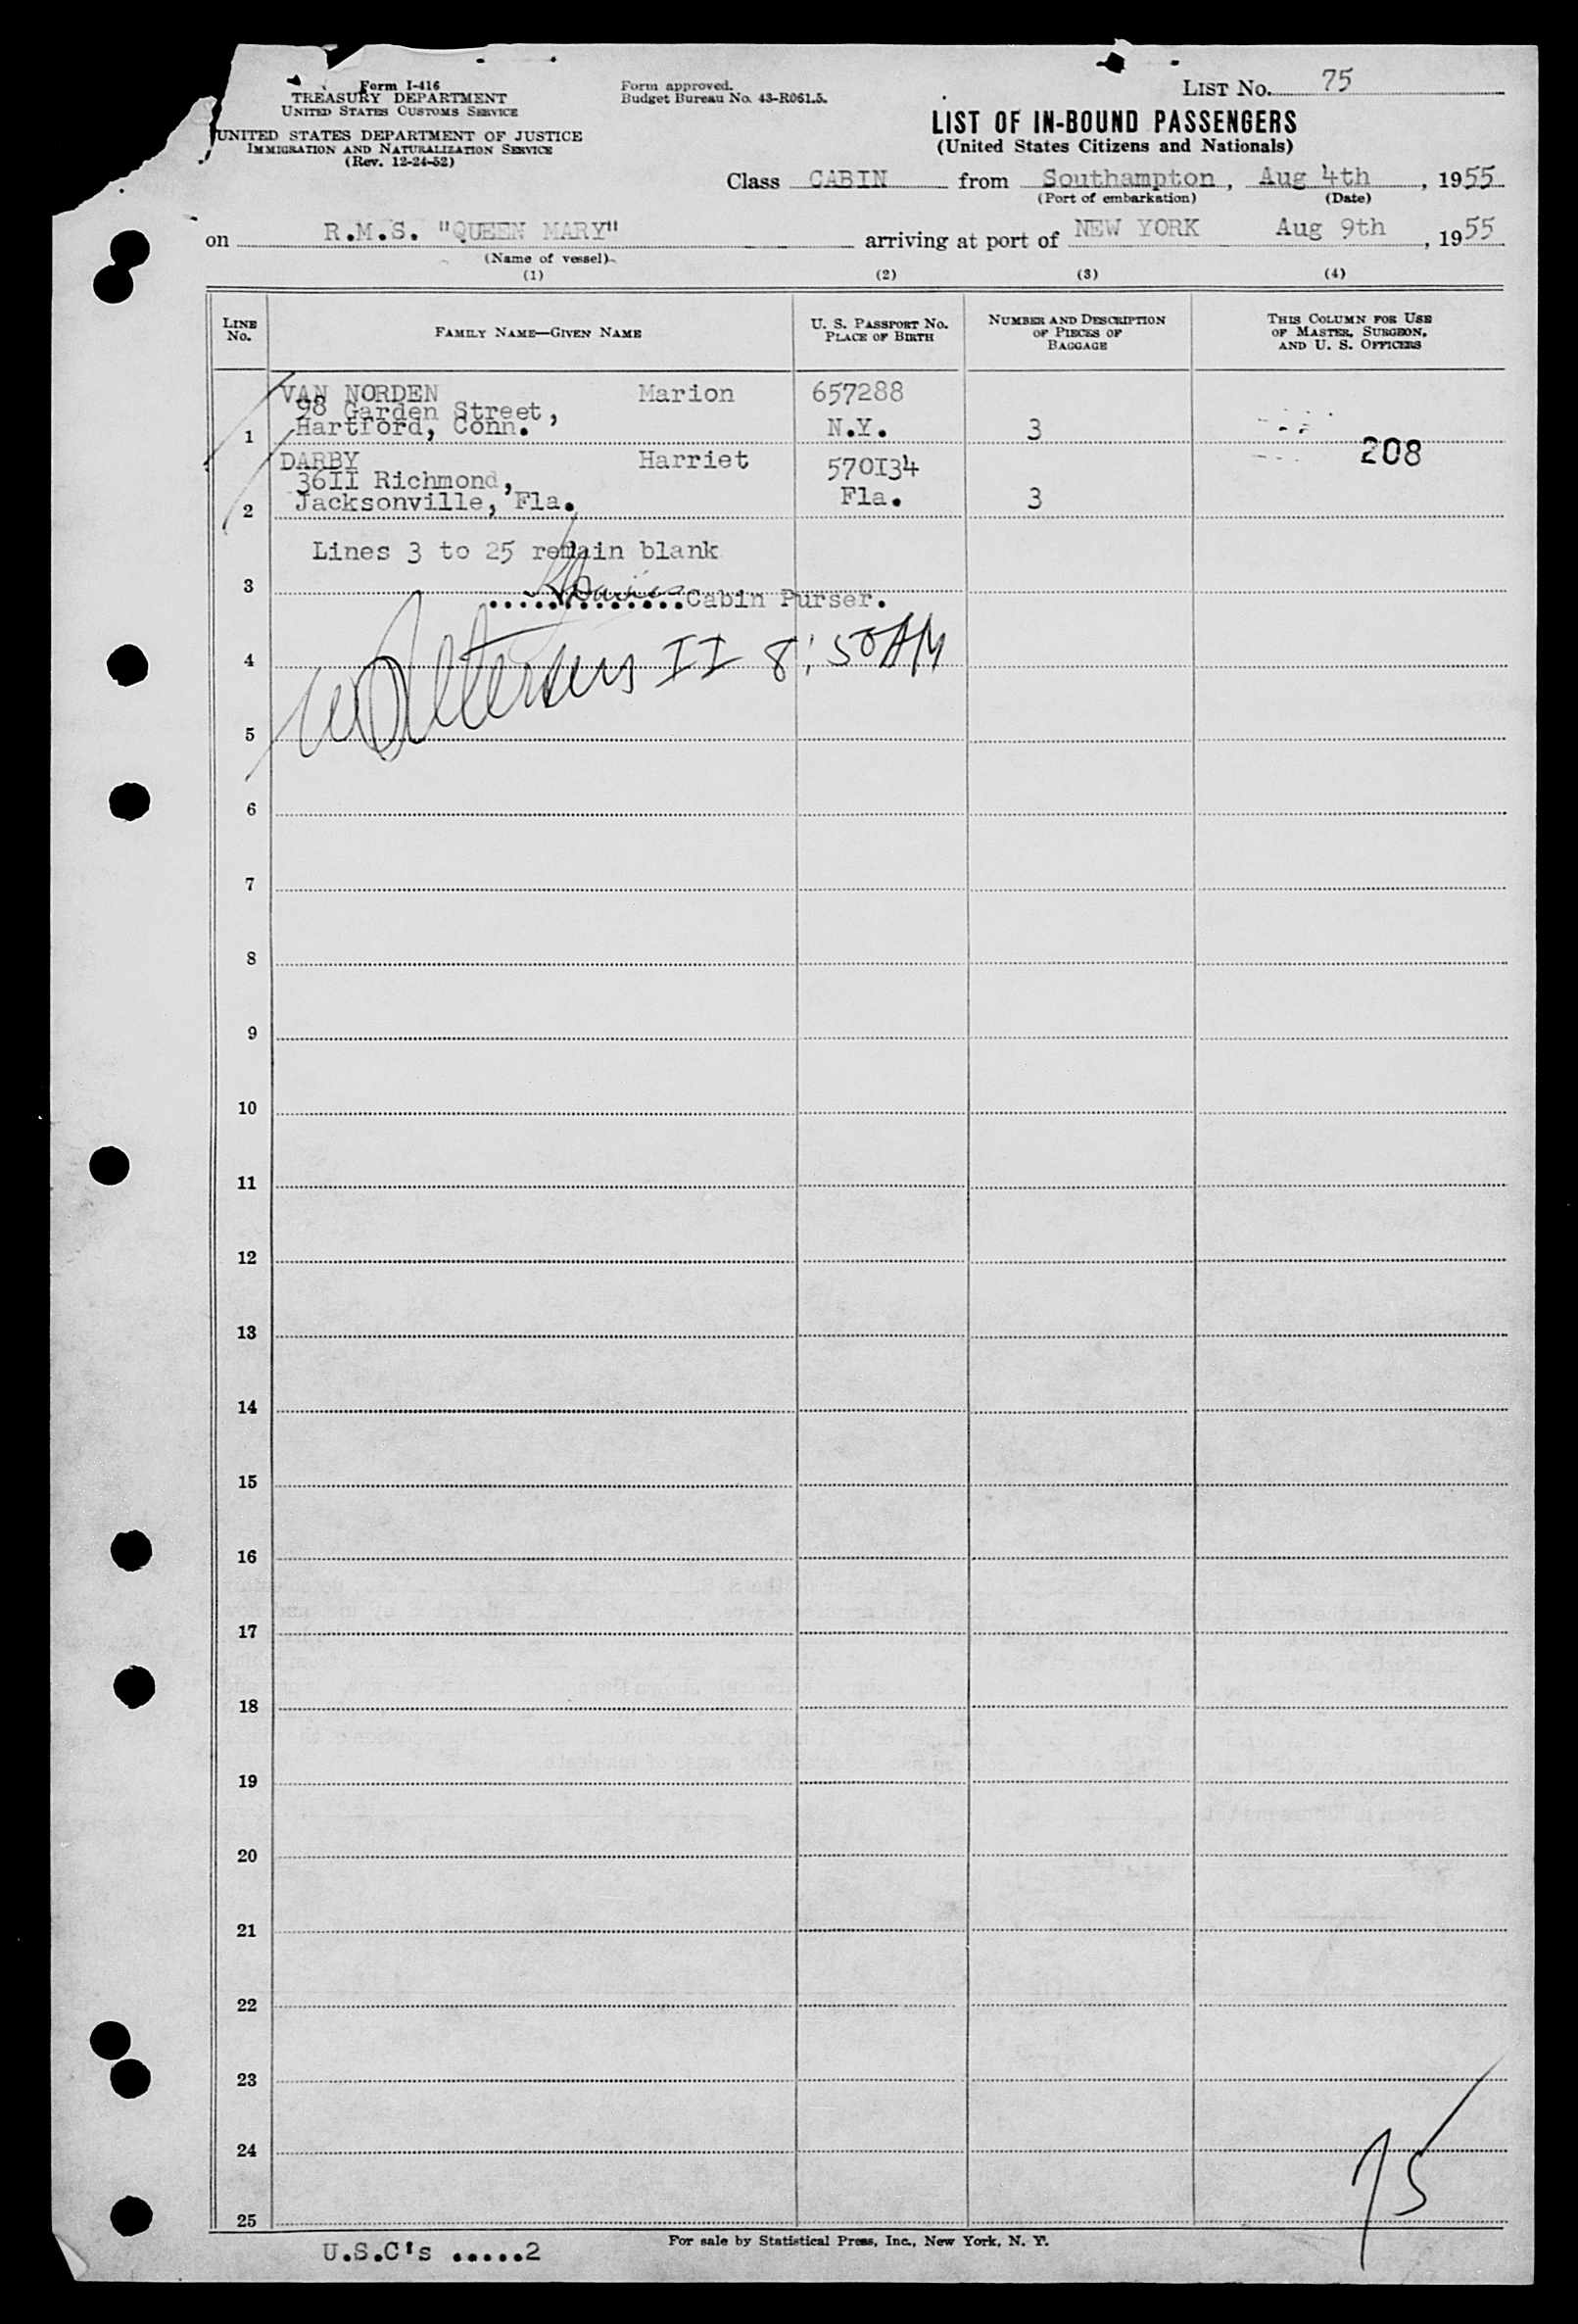 Form I-416
TREASURY DEPARTMENT
UNITED STATES CUSTOMS SERVICE
UNITED STATES DEPARTMENT OF JUSTICE
IMMIGRATION AND NATURALIZATION SERVICE
(Rev. 12-24-52)
Form approved.
Budget Bureau No. 43-R061.5.
LIST NO. 75
LIST OF IN-BOUND PASSENGERS
(United States Citizens and Nationals)
Class CABIN from Southampton, Aug 4th, 1955
(Port of embarkation) (Date)
on R.M.S. "QUEEN MARY" arriving at port of NEW YORK Aug 9th, 1955
(Name of vessel)
(1) (2) (3) (4)
LINE NO.
FAMILY NAME—GIVEN NAME
U. S. PASSPORT NO.
PLACE OF BIRTH
NUMBER AND DESCRIPTION
OF PIECES OF
BAGGAGE
THIS COLUMN FOR USE
OF MASTER, SURGEON,
AND U. S. OFFICERS
VAN NORDEN Marion 657288
98 Garden Street,
1 Hartford, Conn. N.Y. 3
208
DARBY Harriet 570I34
36II Richmond,
2 Jacksonville, Fla. Fla. 3
Lines 3 to 25 remain blank
3
Cabin Purser.
4 II 8:50 AM
5
6
7
8
9
10
11
12
13
14
15
16
17
18
19
20
21
22
23
24
75
25
U.S.C's .....2
For sale by Statistical Press, Inc., New York, N. Y.